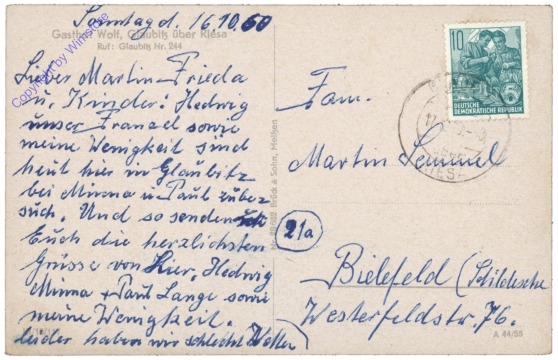 Sonntag d. 16.10.60
Gasthof Wolf, Glaubitz über Riesa
Ruf: Glaubitz Nr. 244
Lieber Martin Frieda
u. Kinder! Hedwig
unser Franzel sowie
meine Wenigkeit sind
heut hier in Glaubitz
bei Minna u. Paul zu be-
such. Und so senden
Euch die herzlichsten
Grüsse von hier, Hedwig
Minna + Paul Lange sowie
meine Wenigkeit.
leider haben wir schlecht Wetter
Brück & Sohn, Meißen
Copyright by Winsider
10
5
DEUTSCHE
DEMOKRATISCHE REPUBLIK
RIESA
Fam.
Martin Semmel
21a
Bielefeld (Schildesche
Westerfeldstr. 76.
A 44/55